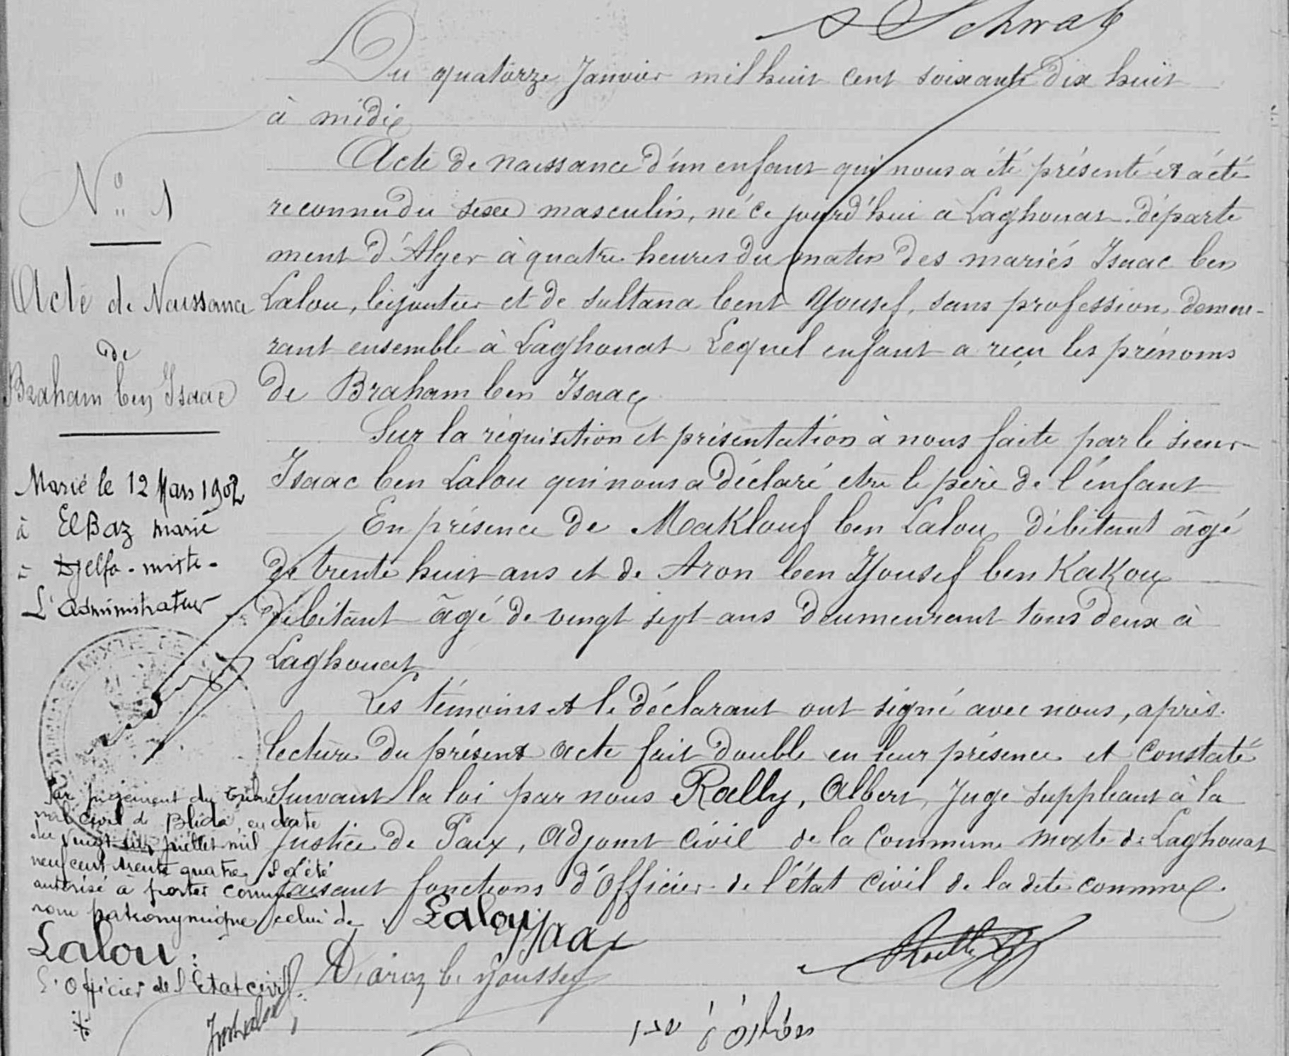 Schwab
Du quatorze Janvier mil huit cent soixante dix huit
à midi
Acte de naissance d'un enfant qui nous a été présenté et a été
reconnu du sexe masculin, né ce jourd'hui à Laghouat départe
ment d'Alger à quatre heures du matin des mariés Isaac ben
Lalou, bijoutier et de Sultana bent Yousef, sans profession, demeu-
rant ensemble à Laghouat Lequel enfant a reçu les prénoms
de Braham ben Isaac
Sur la réquisition et présentation à nous faite par le sieur
Isaac ben Lalou qui nous a déclaré etre le père de l'enfant
En présence de Maklouf ben Lalou, débitant âgé
de trente huit ans et de Aron ben Yousef ben Kakou
débitant âgé de vingt sept ans demeurant tous deux à
Laghouat
Les témoins et le déclarant ont signé avec nous, après
lecture du présent acte fait double en leur présence et constaté
suivant la loi par nous Roelly, Albert, Juge suppléant à la
Justice de Paix, Adjoint civil de la Commune mixte de Laghouat
faisant fonctions d'Officier de l'état civil de la dite commune.
Lalou Isaac
b. Youssef
N° 1
Acte de Naissance
de
Braham ben Isaac
Marié le 12 Mars 1902
à El Baz marie
à Djelfa-mixte-
L'administrateur
COMMUNE MIXTE
Par jugement du tribu
nal civil de Blida en date
du vingt six juillet mil
neuf cent trente quatre, il a été
autorisé à porter comme
nom patronymique celui de
Lalou:
L'Officier de l'Etat civil